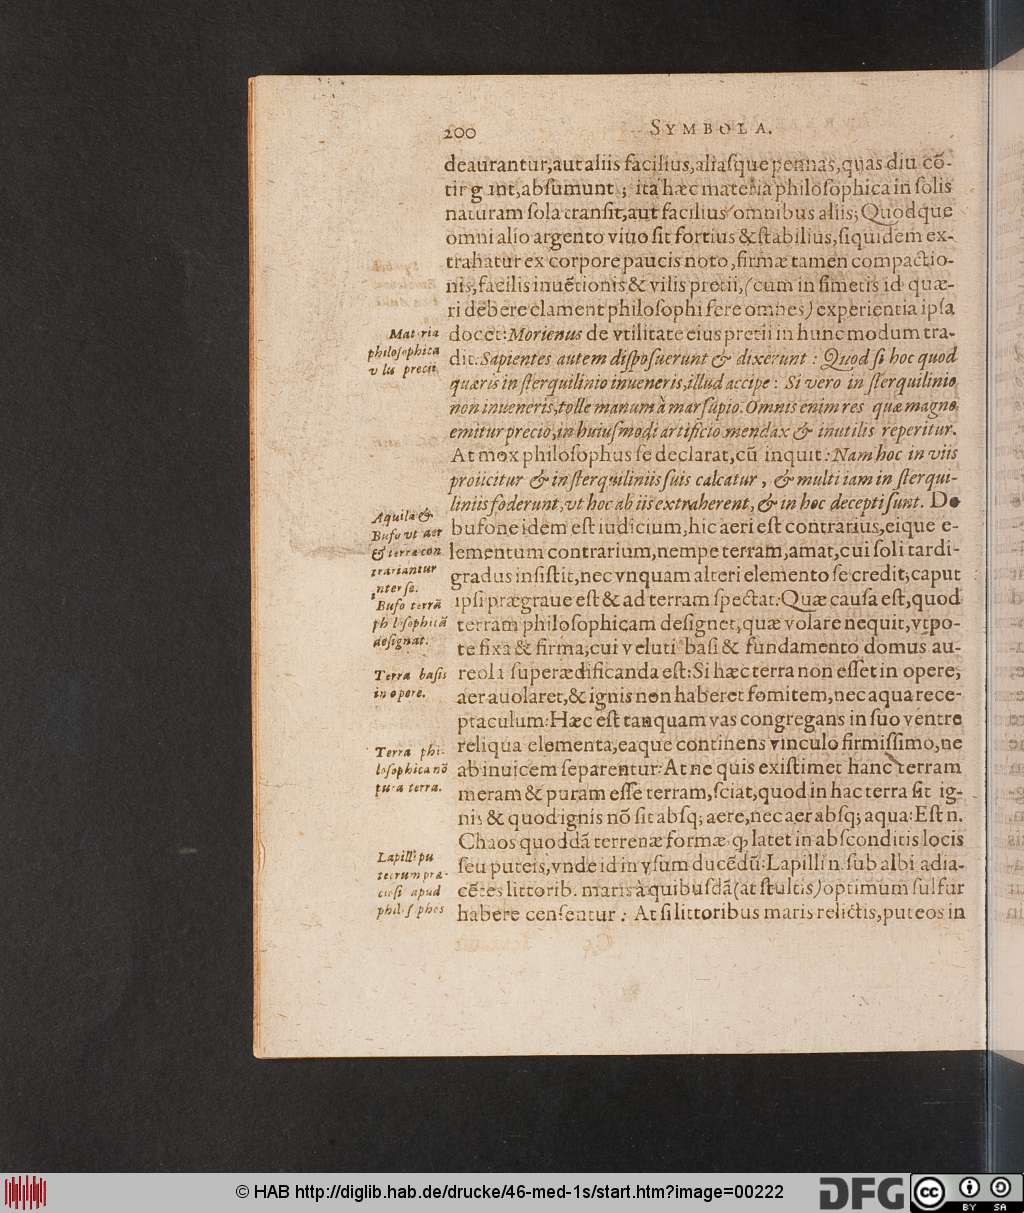 200
SYMBOLA.
deaurantur,aut aliis facilius,aliaſque pennas,quas diu cõ-
tingunt,abſumunt; ita hæc materia philoſophica in ſolis
naturam ſola tranſit,aut facilius omnibus aliis; Quodque
omni alio argento viuo ſit fortius & ſtabilius,ſiquidem ex-
trahatur ex corpore paucis noto,firmæ tamen compactio-
nis,facilis inuẽtionis & vilis pretii,(cum in ſimetis id quæ-
ri debere clament philoſophi fere omnes) experientia ipſa
docet: Morienus de vtilitate eius pretii in hunc modum tra-
dit: Sapientes autem diſpoſuerunt & dixerunt: Quod ſi hoc quod
quæris in ſterquilinio inueneris,illud accipe: Si vero in ſterquilinio
non inueneris,tolle manum à marſupio. Omnis enim res quæ magno
emitur precio,in huiuſmodi artificio mendax & inutilis reperitur.
At mox philoſophus ſe declarat,cũ inquit: Nam hoc in viis
proiicitur & in ſterquiliniis ſuis calcatur, & multi iam in ſterqui-
liniis foderunt,vt hoc ab iis extraherent,& in hoc decepti ſunt. De
bufone idem eſt iudicium,hic aeri eſt contrarius,eique e-
lementum contrarium,nempe terram,amat,cui ſoli tardi-
gradus inſiſtit,nec vnquam alteri elemento ſe credit; caput
ipſi prægraue eſt & ad terram ſpectat: Quæ cauſa eſt,quod
terram philoſophicam deſignet,quæ volare nequit,vtpo-
te fixa & firma,cui veluti baſi & fundamento domus au-
reoli ſuperædificanda eſt: Si hæc terra non eſſet in opere,
aer auolaret,& ignis non haberet fomitem,nec aqua rece-
ptaculum: Hæc eſt tanquam vas congregans in ſuo ventre
reliqua elementa,eaque continens vinculo firmiſſimo,ne
ab inuicem ſeparentur: At ne quis exiſtimet hanc terram
meram & puram eſſe terram,ſciat,quod in hac terra ſit ig-
nis & quod ignis nõ ſit abſq; aere,nec aer abſq; aqua: Eſt n.
Chaos quoddã terrenæ formæ ꝙ latet in abſconditis locis
ſeu puteis,vnde id in vſum ducẽdũ: Lapilli n. ſub albi adia-
cẽtes littorib. maris à quibuſdã (at ſtultis) optimum ſulfur
habere cenſentur: At ſi littoribus maris relictis,puteos in
Materia
philoſophica
vilis precii
Aquila &
Bufo vt aer
& terra con
trariantur
inter ſe.
Bufo terrã
philoſophicã
deſignat.
Terra baſis
in opere.
Terra phi-
loſophica nõ
pura terra.
Lapilli pu
teorum præ-
cioſi apud
philoſophos
© HAB http://diglib.hab.de/drucke/46-med-1s/start.htm?image=00222
DFG
cc
BY SA